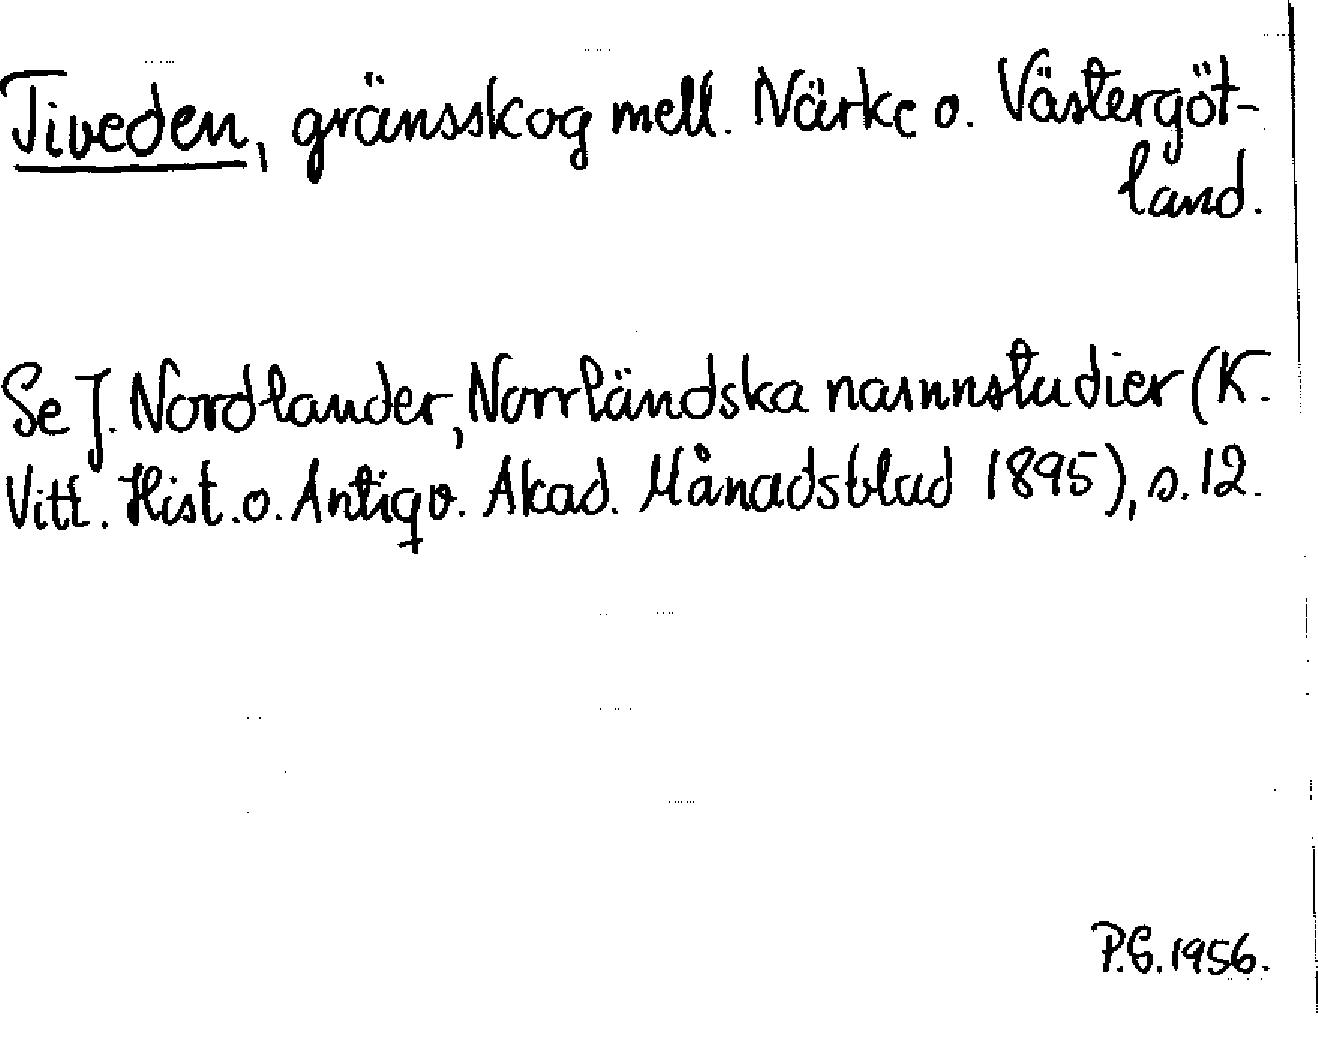 Tiveden, gränsskog mell. Närke o. Västergöt-
land.
Se J. Nordlander, Norrländska namnstudier (K.
Vitt. Hist. o. Antiqv. Akad. Månadsblad 1895), s. 12.
P.G. 1956.